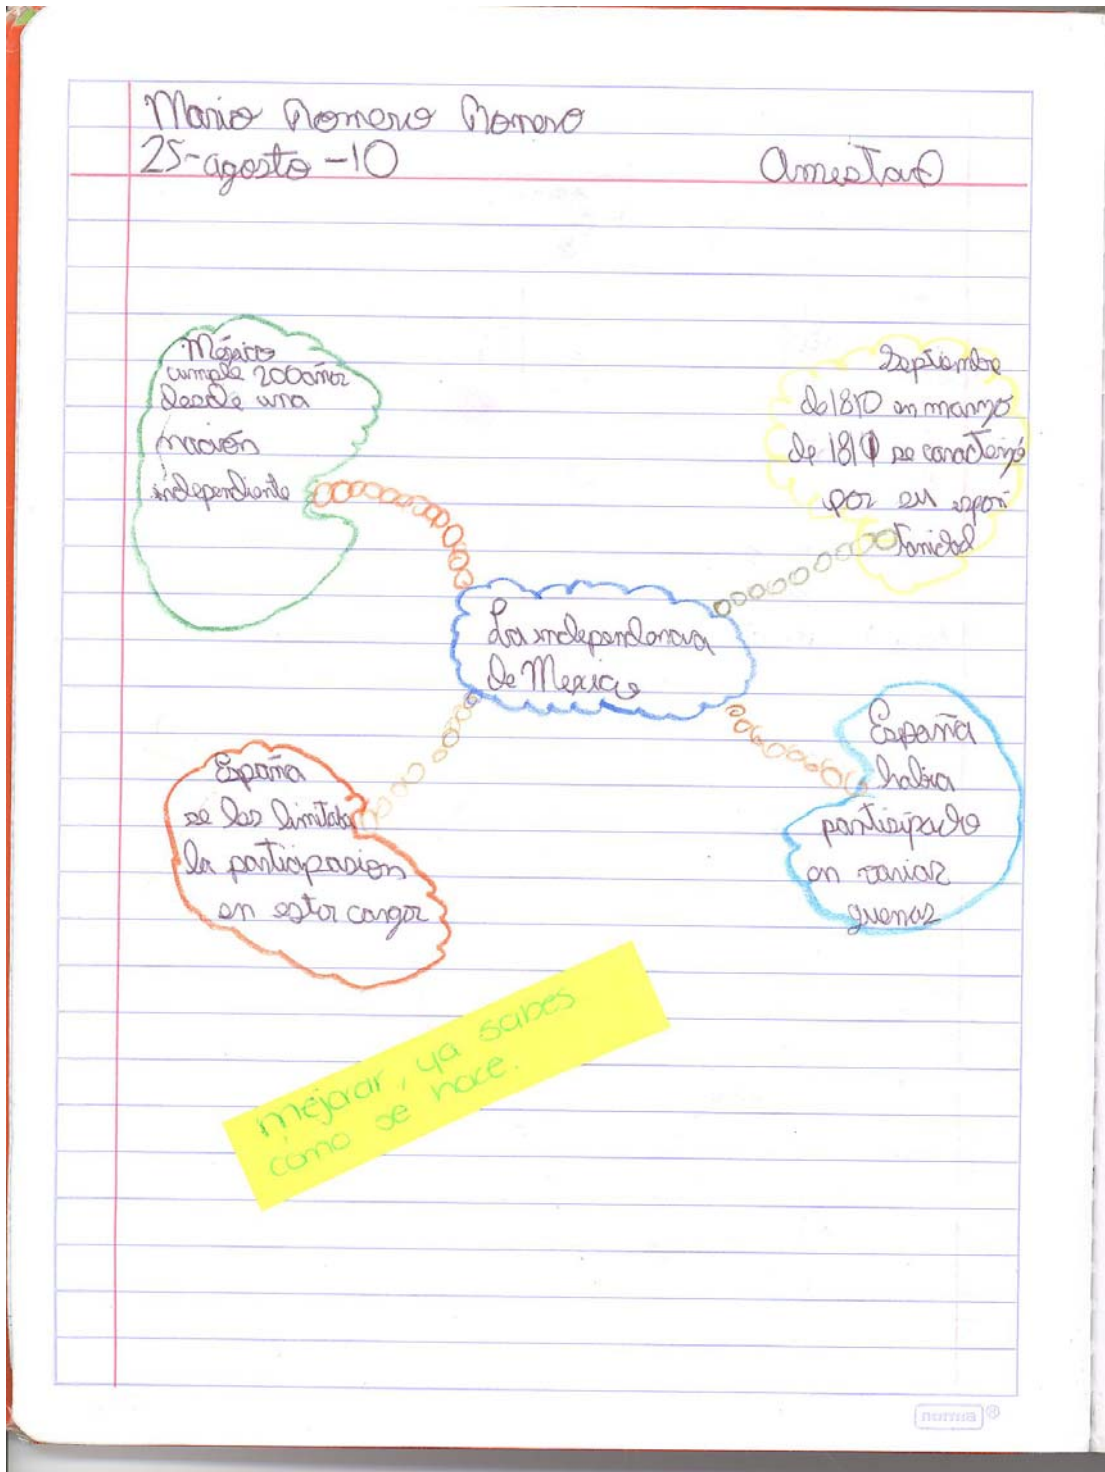 Mario Romero Romero
25-agosto-10
Amistad
México
cumple 200 años
desde una
nación
independiente
Septiembre
de 1810 en marzo
de 1811 se caracterizó
por su espon
tanidad
La independencia
de Mexico
España
se les limitaba
la participasion
en estos cargos
España
habia
partisipado
en varias
guerras
mejorar, ya sabes
como se hace.
norma®